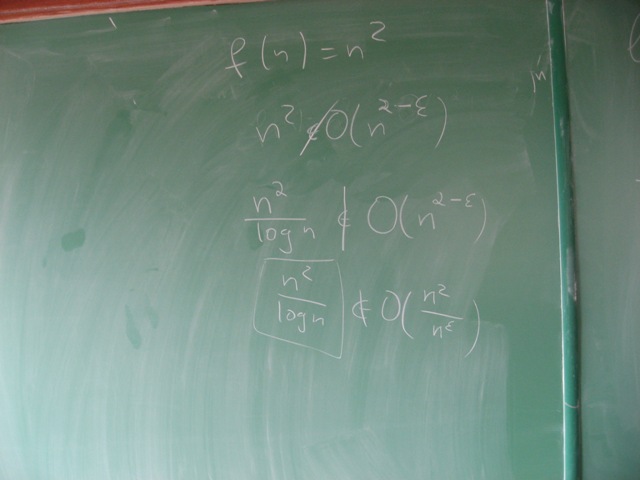 f(n) = n²
n² ∉ O(n^{2-ε})
n²/log n ∉ O(n^{2-ε})
n²/log n ∉ O(n²/n^ε)